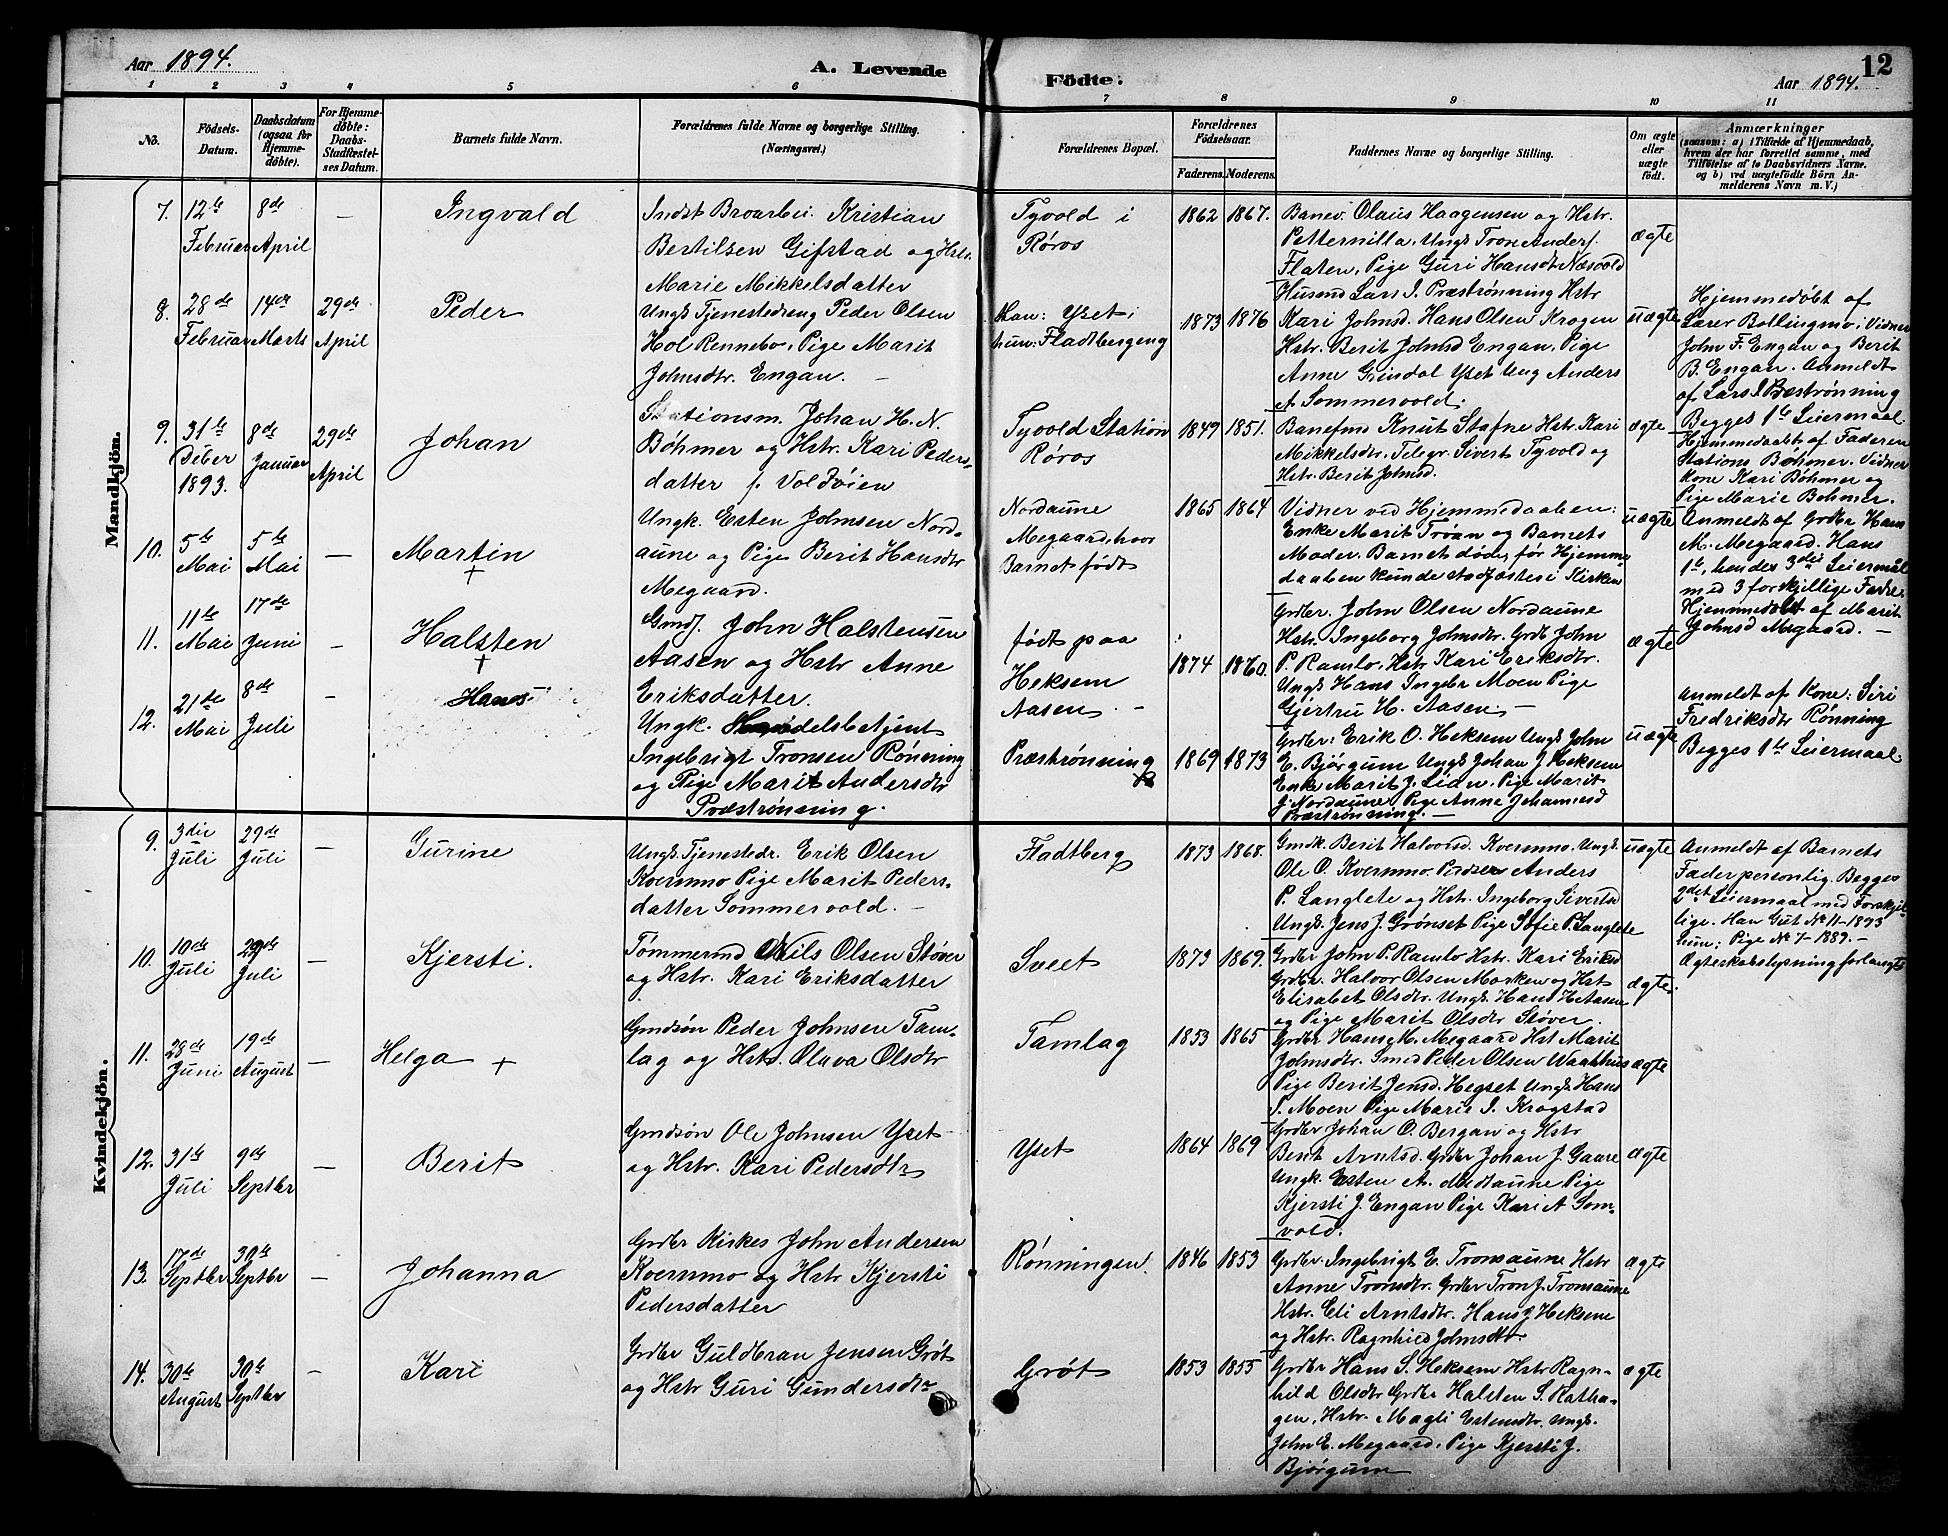 Aar 1894.
A. Levende
Födte.
Aar 1894.
12
1 2 3 4 5 6 7 8 9 10 11
No.
Födsels-
Datum.
Daabsdatum
(ogsaa for
Hjemme-
döbte).
For Hjemme-
döbte:
Daabs-
Stadfæstel-
ses Datum.
Barnets fulde Navn.
Forældrenes fulde Navne og borgerlige Stilling.
(Næringsvei.)
Forældrenes Bopæl.
Forældrenes
Födselsaar.
Faderens. Moderens.
Faddernes Navne og borgerlige Stilling.
Om ægte
eller
uægte
födt.
Anmærkninger
(saasom: a) i Tilfælde af Hjemmedaab,
hvem der har forrettet samme, med
Tilföielse af to Daabsvidners Navne.
og b) ved uægtefödte Börn An-
melderens Navn m. V.)
Mandkjön.
7. 12te Februar
8de April
—
Ingvald
Indst Broarbei. Kristian
Bertilsen Gifstad og Hstr.
Marie Mikkelsdatter
Tyvold i
Røros
1862 1867.
Banev. Olaus Haagensen og Hstr.
Petternilla, Ungk Tron Anders.
Flaten, Pige Guri Hansdt Næsvold
ægte
8. 28de Februar
14de Marts
29de April
Peder
Ungk Tjenestedreng Peder Olsen
Hol Rennebo, Pige Marit
Johnsdtr. Engan. —
Han: Yset i
hun: Fladbergeng
1873 1876
Husmd Lars I. Præstrønning Hstr
Kari Johnsd. Hans Olsen Krogen
Hstr. Berit Johnsd Engan, Pige
Anne Grindal Yset Ung Anders
A Sommervold.
uægte
Hjemmedøbt af
Lærer Bollingmo i Vidner
John F. Engan og Berit
B. Engan. Anmeldt
af Lars I Præstrønning
Begges 1te Leiermaal
9. 31te Deber 1893.
8de Januar
29de April
Johan
Stationsm. Johan H. N.
Bøhmer og Hstr. Kari Peders-
datter f. Voldvien
Tyvold Station
Røros
1849 1851.
Banefmd Knut Stafne Hstr. Kari
Mikkelsdtr. Telegr. Sivert Tyvold og
Hstr. Berit Johnsd.
ægte
Hjemmedøbt af Faderen
Stations Bøhmer. Vidner
Kone Kari Bøhmer og
Pige Marie Bøhmer.
10. 5te Mai
5te Mai
—
Martin
+
Ungk. Esten Johnsen Nord-
aune og Pige Berit Hansdtr
Megaard.
Nordaune
Megaard, hvor
Barnet født
1865 1864
Vidner ved Hjemmedaaben:
Enke Marit Trøan og Barnets
Moder. Barnet døde, før Hjemme-
daaben kunde stadfæstes i Kirken
uægte
Anmeldt af Grdbr Hans
M. Megaard. Hans
1te, hendes 3die Leiermål
med 3 forskjellige Fædre.
Hjemmedøbt af Marit
Johnsd Megaard. —
11. 11te Mai
17de Juni
—
Halsten
+
Gmdj. John Halstensen
Aasen og Hstr Anne
Eriksdatter.
født paa
Heksem
Aasen. —
1874 1870.
Grdbr. John Olsen Nordaune
Hstr. Ingeborg Johnsdtr. Grdb John
P. Ramlo, Hstr Kari Eriksdtr.
Ungk Hans Ingebr Moen Pige
Gjertru H. Aasen. —
ægte
12. 21de Mai
8de Juli
—
Hans
Ungk. Handelsbetjent
Ingebrigt Tronsen Rønning
og Pige Marit Andersdtr
Præstrønning.
Præstrønning
1869 1873
Grdbr: Erik O. Heksem Ungk John
E. Bjørgum Ungk Johan J Heksem
Enke Marit J. Lien, Pige Marit
J Nordaune, Pige Anne Johannesd
Præstrønning. —
uægte
Anmeldt af Kone: Siri
Fredriksdtr Rønning
Begges 1te Leiermaal
Kvindekjön.
9. 3die Juli
29de Juli
—
Surine
Ungk Tjenestedr. Erik Olsen
Kvernmo Pige Marit Peders-
datter Sommervold. —
Fladtberg
1873 1868.
Gmdk. Berit Halvorsd. Kvernmo. Ungk.
Ole O. Kvernmo. Anders
P. Langlete og Hstr. Ingeborg Sivertsd
Ungk. Jens J. Grønset Pige Sofie P. Langlete
uægte
Anmeldt af Barnets
Fader personlig. Begges
2det Leiermaal med Forskjel-
lige. Han Gut No 11-1893
hun: Pige No 7-1889. —
Ægteskabslysning forlangt
10. 10de Juli
29de Juli
—
Kjersti.
Tømmermd Nils Olsen Støver
og Hstr. Kari Eriksdatter
Sveet
1873 1869.
Grdbr John P. Ramlo Hstr. Kari Eriksd
Grdbr. Halvor Olsen Morken og Hst
Elisabet Olsdtr. Ungk. Hans H. Aasen
og Pige Marit Olsdtr Støver.
ægte.
11. 28de Juni
19de August
—
Helga +
Gmdsøn Peder Johnsen Tam-
lag og Hstr. Olava Olsdtr
Tamlag
1853 1865
Grdbr Hans M. Megaard Hst Marit
Johnsdtr. Smed Peder Olsen Waahhus
Pige Berit Jensd. Hegset Ungk Hans
I. Moen Pige Marie I. Krogstad
ægte
12. 31te Juli
9de Septbr
—
Berit
Gmdsøn Ole Johnsen Yset
og Hstr. Kari Pedersdtr
Yset
1864 1869
Grdbr Johan O. Bergan og Hstr
Berit Arntsd. Grdbr Johan J. Gaare
Ungk. Esten A. Midtaune Pige
Kjersti J. Engan Pige Kari A Som-
vold.
ægte
13. 17de Septbr
30te Septbr
—
Johanna
Grdbr Kirkes John Andersen
Kvernmo og Hstr Kjersti
Pedersdatter
Rønningen.
1846 1853
Grdbr. Ingebrigt E. Tronsaune Hstr
Anne Tronsdtr. Grdbr Tron J. Tronsaune
Hstr. Eli Arntsdtr. Hans J Heksem
og Hstr. Ragnhild Johnsdtr
ægte
14. 30te August
30te Septbr
—
Kari
Grdbr Guldbran Jensen Grøt
og Hstr Guri Gundersdtr
Grøt
1853 1855
Grdbr Hans S. Heksem Hstr Ragn-
hild Olsdtr Grdbr Halsten S. Ratha-
gen, Hstr. Magli Estensdtr. Ungk.
John E. Megaard, Pige Kjersti J.
Bjørgum
ægte